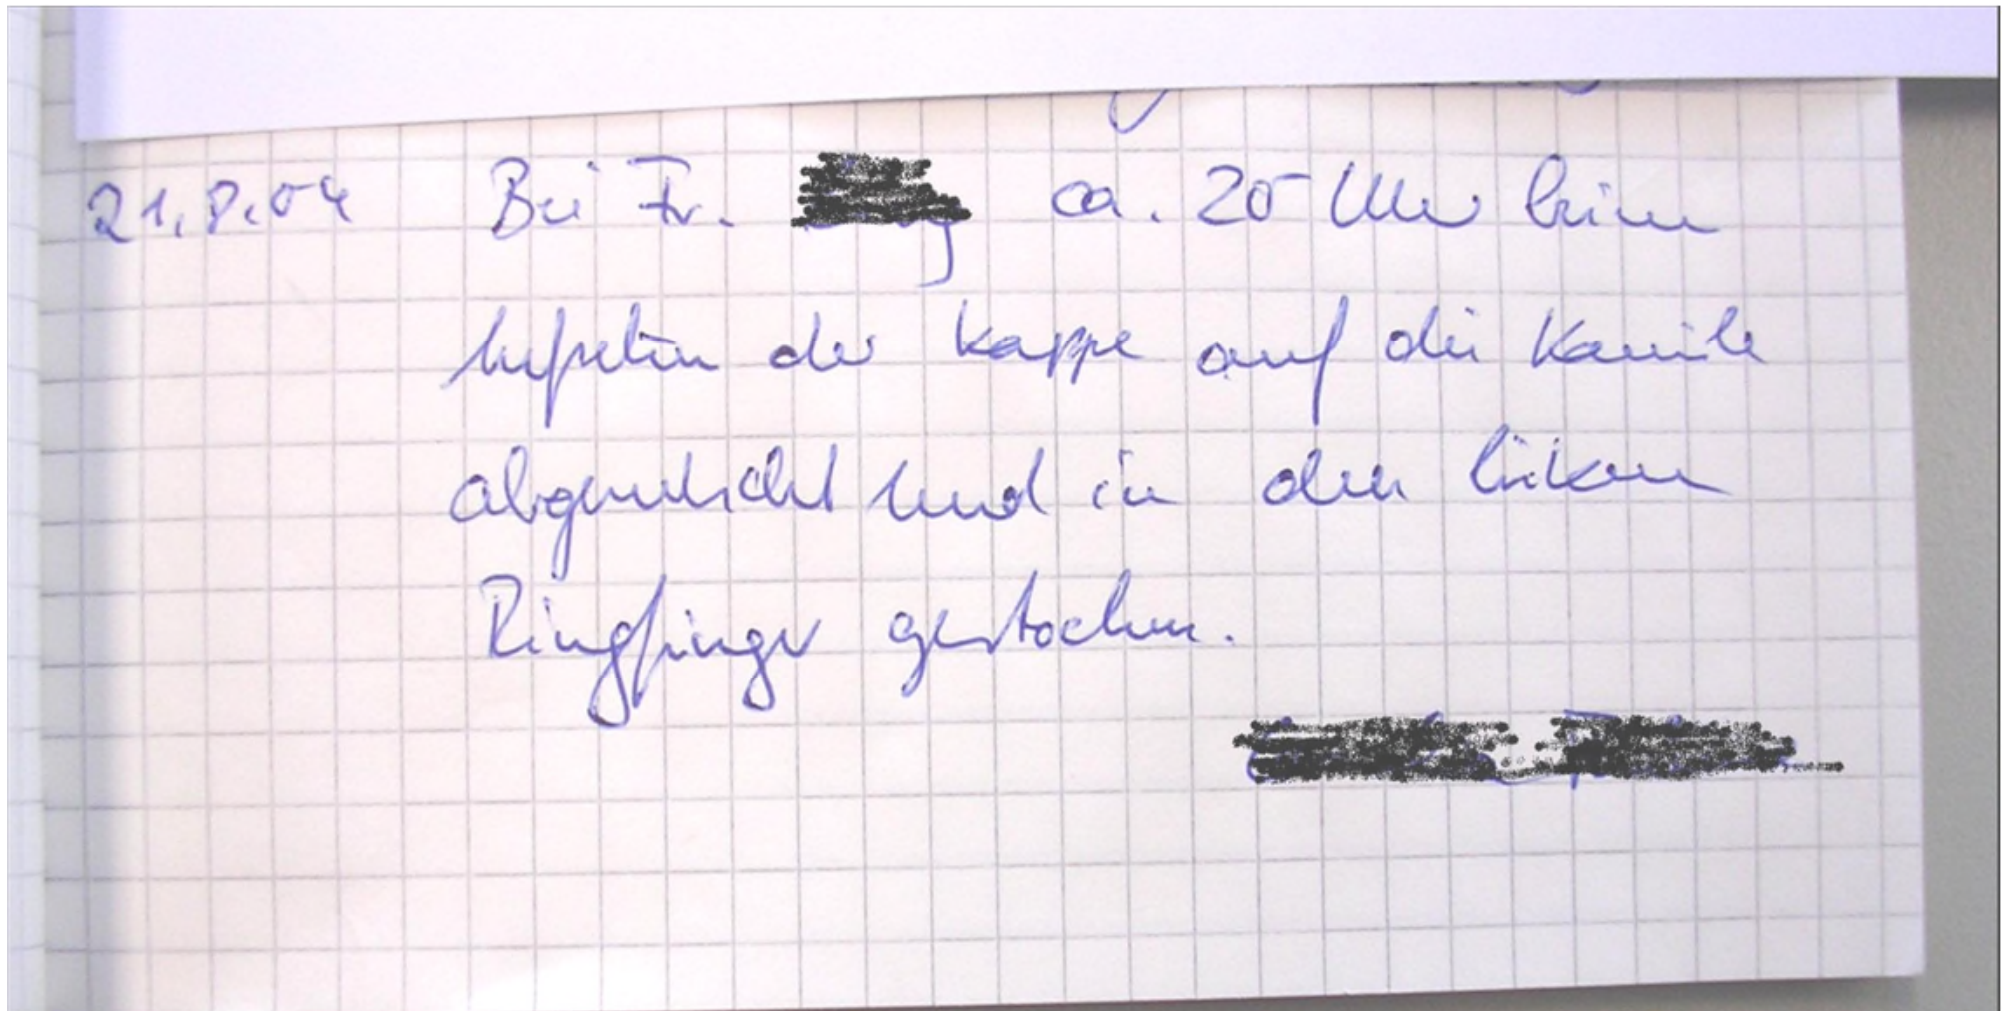 21.8.04 Bei Fr. ca. 20 Uhr beim
Aufsetzen der Kappe auf die Kanüle
abgerutscht und in den linken
Ringfinger gestochen.